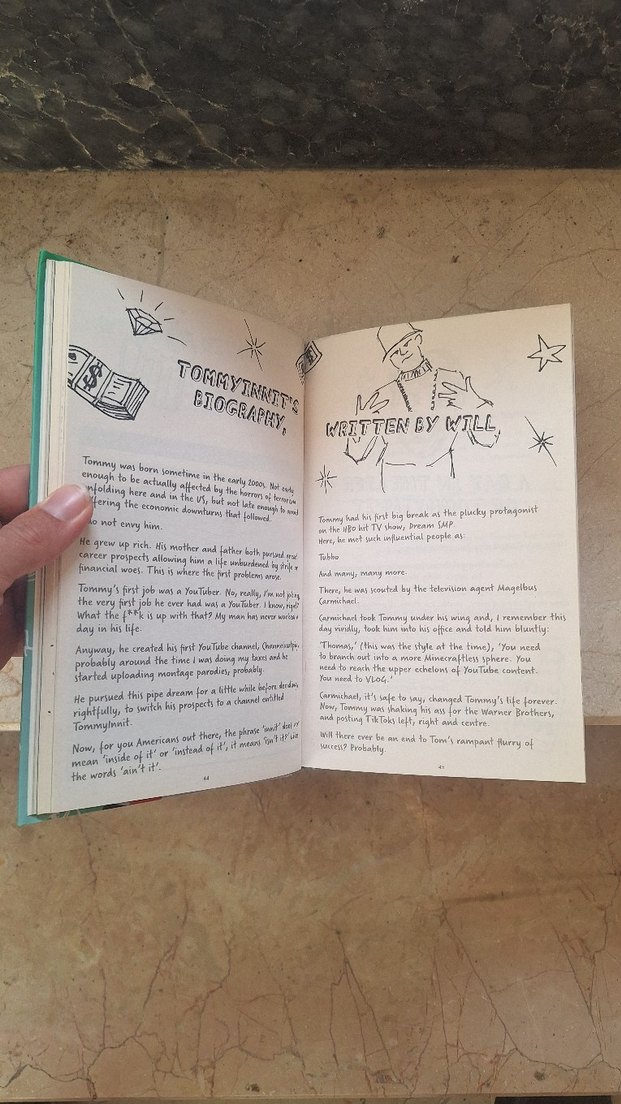 TOMMYINNIT'S
BIOGRAPHY,
Tommy was born sometime in the early 2000s. Not early
enough to be actually affected by the horrors of terrorism
unfolding here and in the US, but not late enough to avoid
suffering the economic downturns that followed.
I do not envy him.
He grew up rich. His mother and father both pursued
career prospects allowing him a life unburdened by strife or
financial woes. This is where the first problems arose.
Tommy's first job was a YouTuber. No, really, I'm not joking,
the very first job he ever had was a YouTuber. I know, right?
What the f**k is up with that? My man has never worked a
day in his life.
Anyway, he created his first YouTube channel,
probably around the time I was doing my taxes and he
started uploading montage parodies, probably.
He pursued this pipe dream for a little while before deciding,
rightfully, to switch his prospects to a channel entitled
TommyInnit.
Now, for you Americans out there, the phrase 'innit' doesn't
mean 'inside of it' or 'instead of it', it means 'isn't it?' like
the words 'ain't it'.
WRITTEN BY WILL
Tommy had his first big break as the plucky protagonist
on the HBO hit TV show, Dream SMP.
Here, he met such influential people as:
Tubbo
And many, many more.
There, he was scouted by the television agent Magelbus
Carmichael.
Carmichael took Tommy under his wing and, I remember this
day vividly, took him into his office and told him bluntly:
'Thomas,' (this was the style at the time), 'You need
to branch out into a more Minecraftless sphere. You
need to reach the upper echelons of YouTube content.
You need to VLOG.'
Carmichael, it's safe to say, changed Tommy's life forever.
Now, Tommy was shaking his ass for the Warner Brothers,
and posting TikToks left, right and centre.
Will there ever be an end to Tom's rampant flurry of
success? Probably.